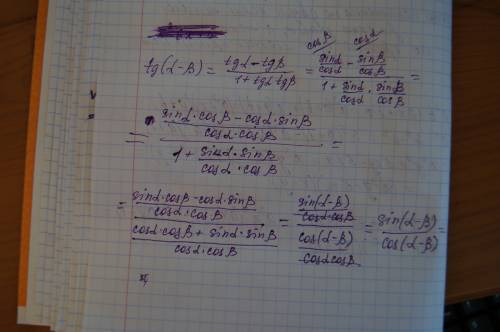 tg(α-β) = (tgα - tgβ)/(1 + tgα tgβ) = (sinα/cosα - sinβ/cosβ)/(1 + sinα/cosα · sinβ/cosβ) =
= ((sinα·cosβ - cosα·sinβ)/(cosα·cosβ))/(1 + (sinα·sinβ)/(cosα·cosβ)) =
= ((sinα·cosβ - cosα·sinβ)/(cosα·cosβ))/((cosα·cosβ + sinα·sinβ)/(cosα·cosβ)) = (sin(α-β)/(cosα·cosβ))/(cos(α-β)/(cosα cosβ)) = sin(α-β)/cos(α-β) =